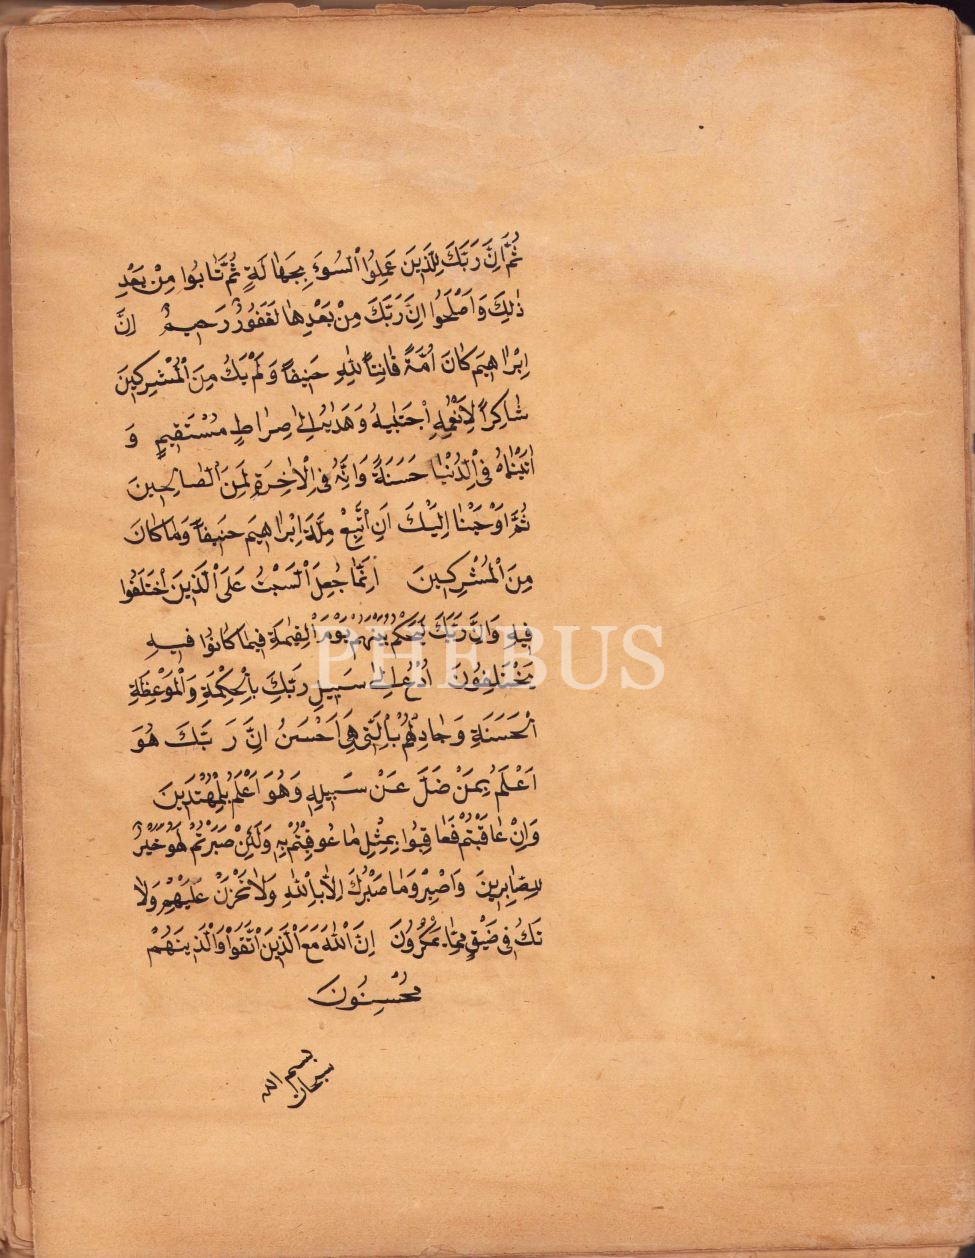 ثُمَّ اِنَّ رَبَّكَ لِلَّذينَ عَمِلُوا ٱلسُّوءَ بِجَهٰالَةٍ ثُمَّ تٰابُوا مِنْ بَعْدِ
ذٰلِكَ وَاَصْلَحُوا اِنَّ رَبَّكَ مِنْ بَعْدِهٰا لَغَفُورٌ رَحيمٌ اِنَّ
اِبْرٰاهيمَ كٰانَ اُمَّةً قٰانِتاً لِلّٰهِ حَنيفاً وَلَمْ يَكُ مِنَ ٱلْمُشْرِكينَ
شٰاكِراً لِاَنْعُمِهِ اِجْتَبٰيهُ وَهَدٰيهُ اِلىٰ صِرٰاطٍ مُسْتَقيمٍ وَ
اٰتَيْنٰاهُ فِى ٱلدُّنْيٰا حَسَنَةً وَاِنَّهُ فِى ٱلْاٰخِرَةِ لَمِنَ ٱلصّٰالِحينَ
ثُمَّ اَوْحَيْنٰا اِلَيْكَ اَنِ ٱتَّبِعْ مِلَّةَ اِبْرٰاهيمَ حَنيفاً وَمٰا كٰانَ
مِنَ ٱلْمُشْرِكينَ اِنَّمٰا جُعِلَ ٱلسَّبْتُ عَلَى ٱلَّذينَ ٱخْتَلَفُوا
فيهِ وَاِنَّ رَبَّكَ لَيَحْكُمُ بَيْنَهُمْ يَوْمَ ٱلْقِيٰمَةِ فيمٰا كٰانُوا فيهِ
يَخْتَلِفُونَ اُدْعُ اِلىٰ سَبيلِ رَبِّكَ بِٱلْحِكْمَةِ وَٱلْمَوْعِظَةِ
ٱلْحَسَنَةِ وَجٰادِلْهُمْ بِٱلَّتى هِىَ اَحْسَنُ اِنَّ رَبَّكَ هُوَ
اَعْلَمُ بِمَنْ ضَلَّ عَنْ سَبيلِهِ وَهُوَ اَعْلَمُ بِٱلْمُهْتَدينَ
وَاِنْ عٰاقَبْتُمْ فَعٰاقِبُوا بِمِثْلِ مٰا عُوقِبْتُمْ بِهِ وَلَئِنْ صَبَرْتُمْ لَهُوَ خَيْرٌ
لِلصّٰابِرينَ وَاصْبِرْ وَمٰا صَبْرُكَ اِلّٰا بِٱللّٰهِ وَلٰا تَحْزَنْ عَلَيْهِمْ وَلٰا
تَكُ فى ضَيْقٍ مِمّٰا يَمْكُرُونَ اِنَّ ٱللّٰهَ مَعَ ٱلَّذينَ ٱتَّقَوْا وَٱلَّذينَ هُمْ
مُحْسِنُونَ
بسم الله
سبحان
PHEBUS